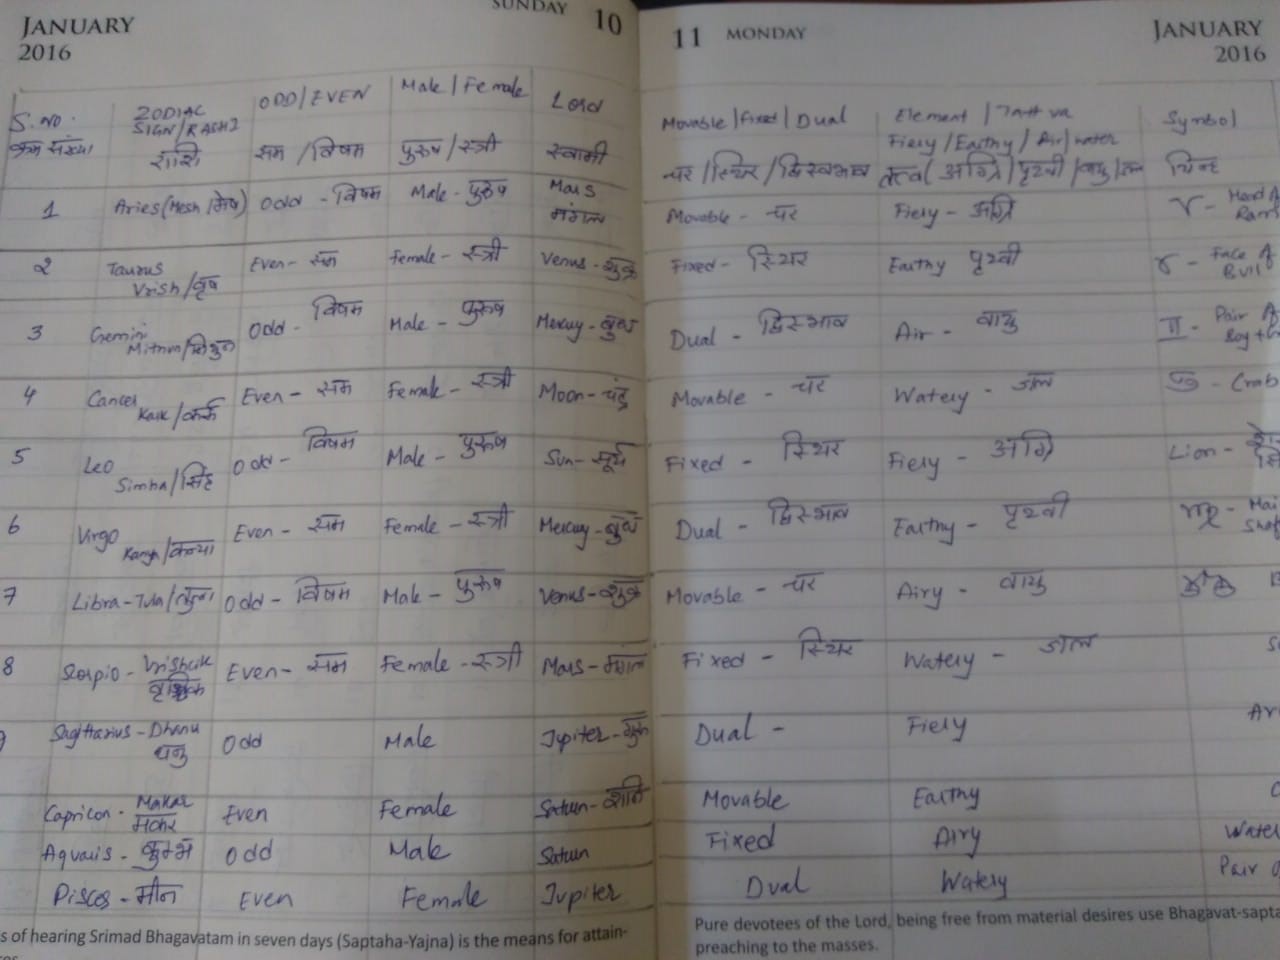 JANUARY
2016
SUNDAY 10
S.no. ZODIAC SIGN/RASHI ODD/EVEN Male/Female Lord
क्रम संख्या राशि सम/विषम पुरुष/स्त्री स्वामी
1 Aries (Mesh/मेष) Odd - विषम Male - पुरुष Mars मंगल
2 Taurus Vrish/वृष Even - सम Female - स्त्री Venus - शुक्र
3 Gemini Mithun/मिथुन Odd - विषम Male - पुरुष Mercuy - बुध
4 Cancer Kark/कर्क Even - सम Female - स्त्री Moon - चंद्र
5 Leo Simha/सिंह Odd - विषम Male - पुरुष Sun - सूर्य
6 Virgo Kanya/कन्या Even - सम Female - स्त्री Mercuy - बुध
7 Libra - Tula/तुला Odd - विषम Male - पुरुष Venus - शुक्र
8 Scorpio - Vrishcik वृश्चिक Even - सम Female - स्त्री Mars - मंगल
Sagittarius - Dhanu धनु Odd Male Jupiter - गुरु
Capricon - Makar मकर Even Female Saturn - शनि
Aquaris - कुम्भ Odd Male Saturn
Pisces - मीन Even Female Jupiter
s of hearing Srimad Bhagavatam in seven days (Saptaha-Yajna) is the means for attain-
11 MONDAY
JANUARY
2016
Movable/Fixed/Dual Element/Tattva Symbol
Fiery/Earthy/Air/water
चर/स्थिर/द्विस्वभाव तत्व (अग्नि/पृथ्वी/वायु/जल चिन्ह
Movable - चर Fiery - अग्नि ♈ - Head of Ram
Fixed - स्थिर Earthy पृथ्वी ♉ - Face of Bull
Dual - द्विस्भाव Air - वायु II - Pair of Boy +
Movable - चर Watery - जल ♋ - Crab
Fixed - स्थिर Fiery - अग्नि Lion -
Dual - द्विस्भाव Earthy - पृथ्वी ♍ -
Movable - चर Airy - वायु
Fixed - स्थिर Watery - जल
Dual - Fiery
Movable Earthy
Fixed Airy Water
Dual Watery Pair
Pure devotees of the Lord, being free from material desires use Bhagavat-sapta
preaching to the masses.